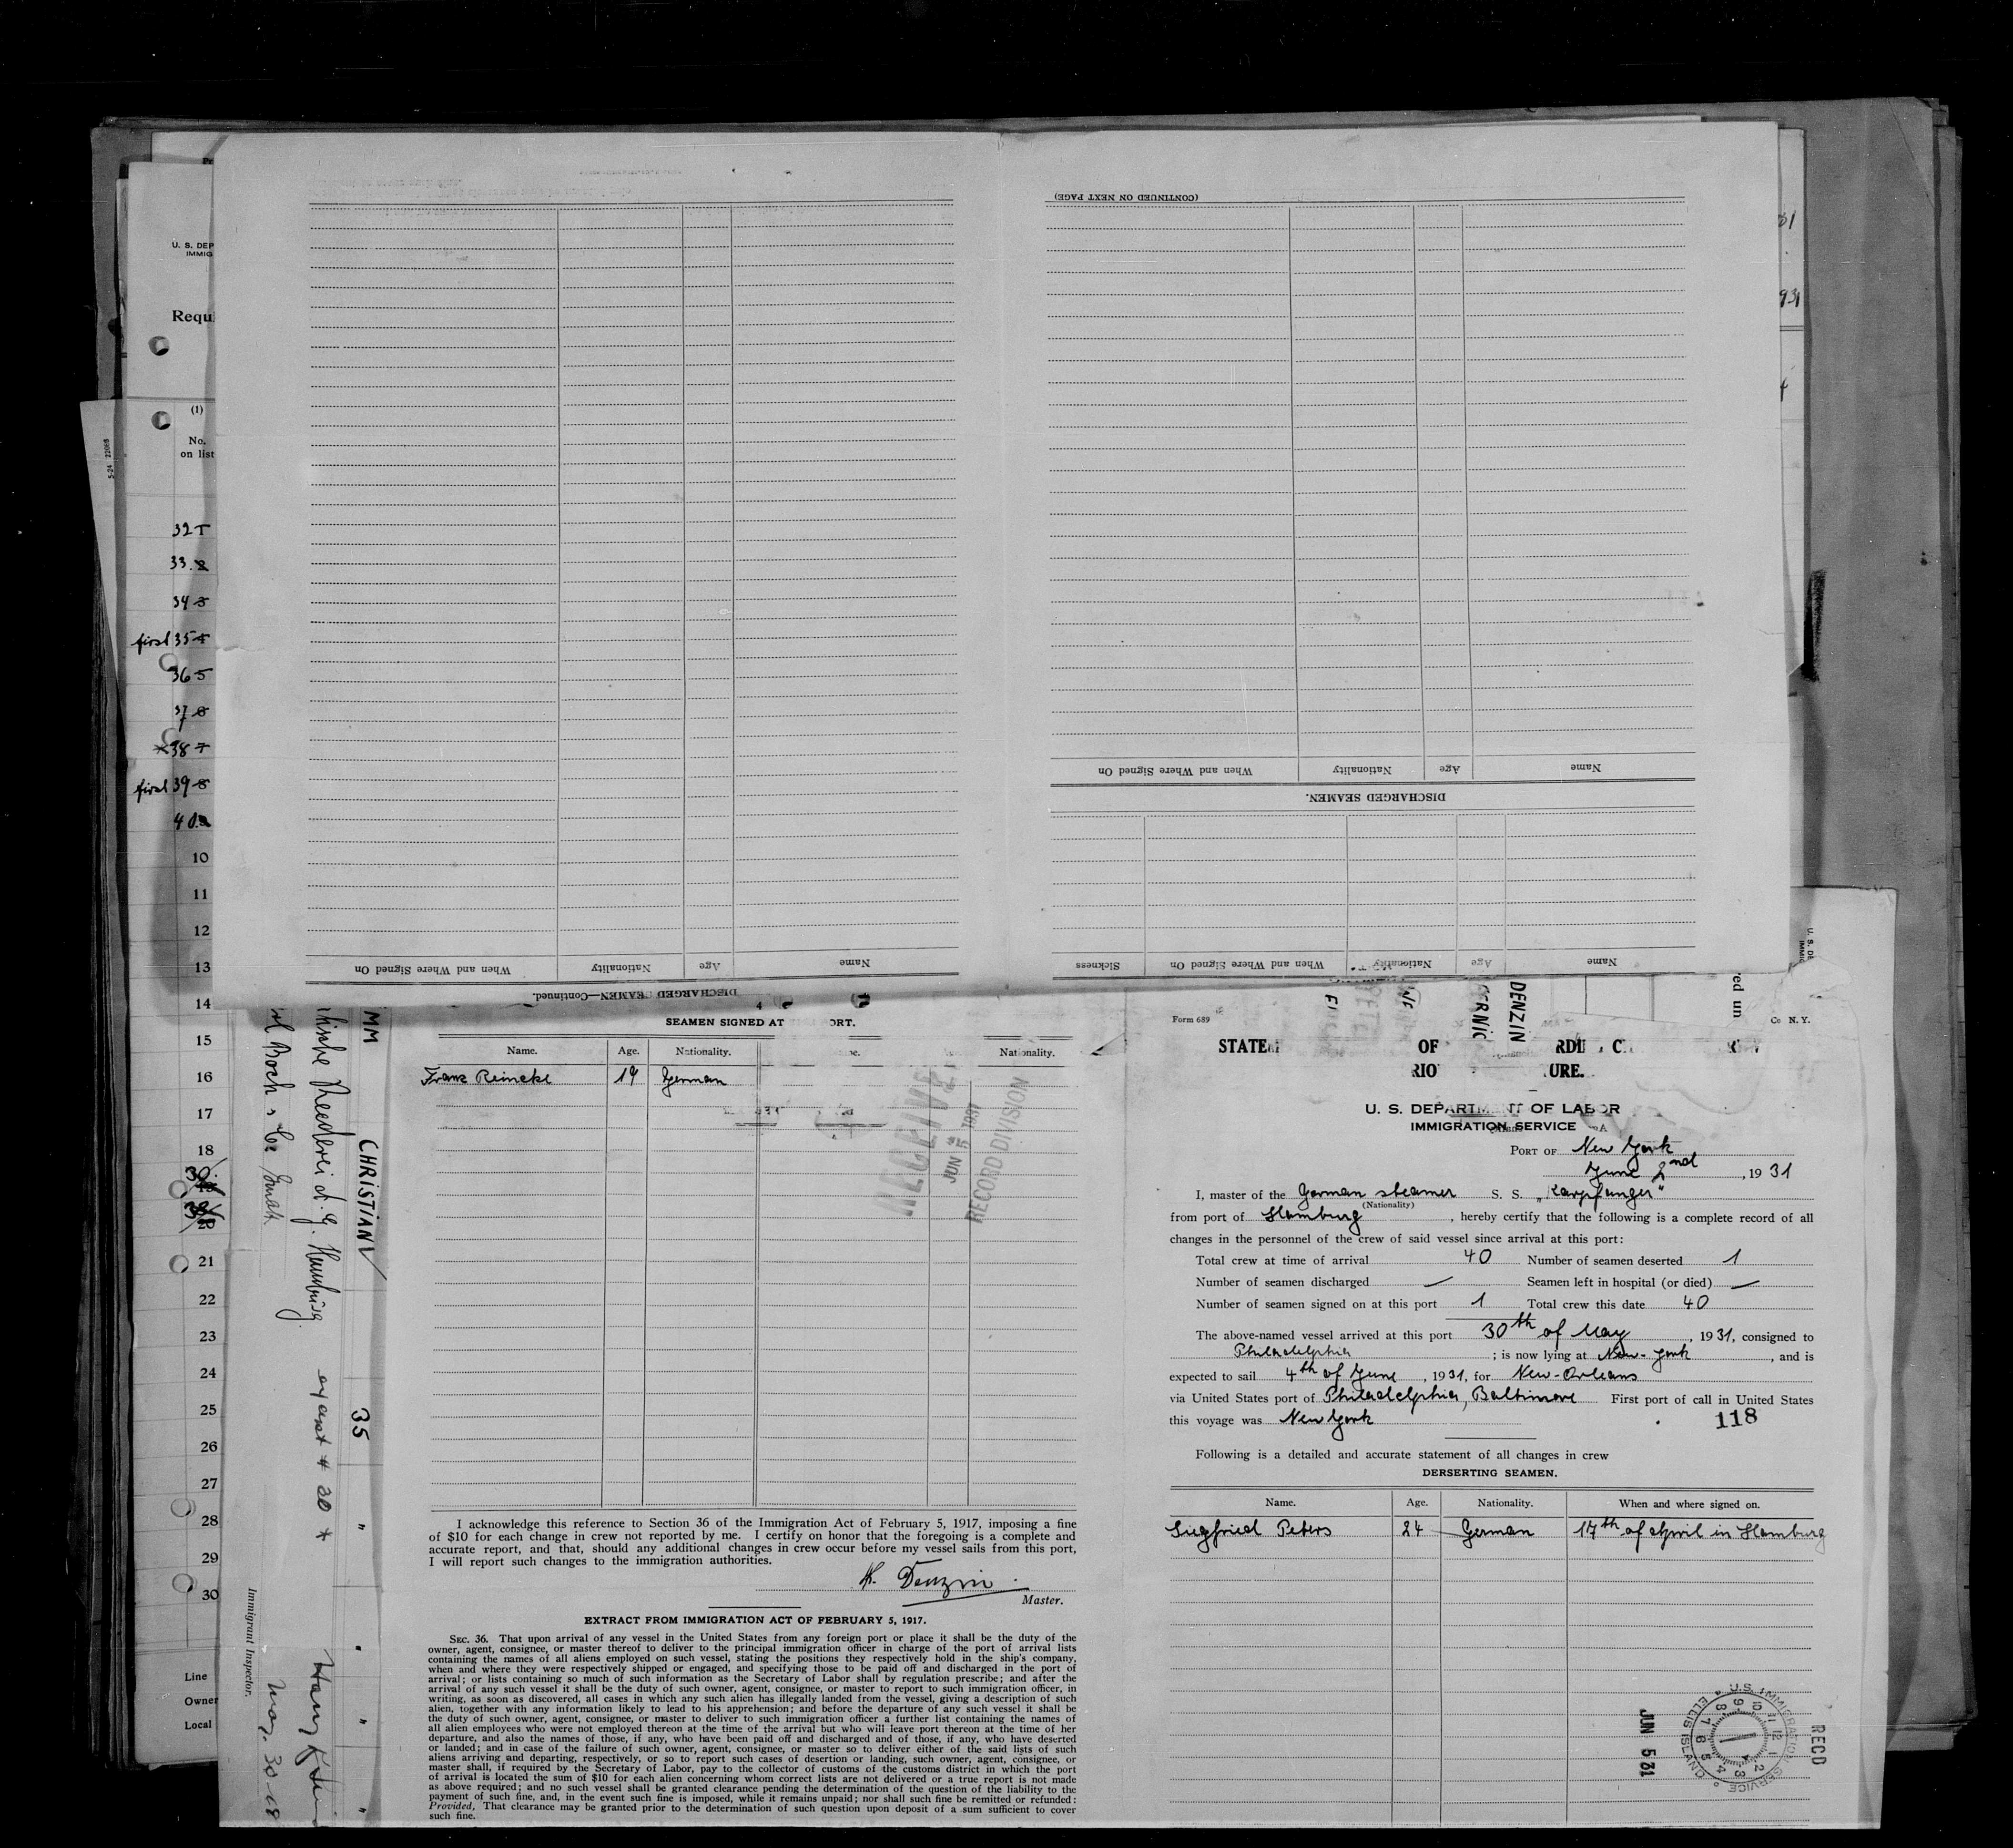 (CONTINUED ON NEXT PAGE)
When and Where Signed On
Nationality
Age
Name
DISCHARGED SEAMEN.
Sickness
When and Where Signed On
Nationality
Age
Name
When and Where Signed On
Nationality
Age
Name
DISCHARGED SEAMEN—Continued.
U. S. DEP
IMMIG
Requ
(1)
No.
on list
5-24 22068
32
33
34
first 35
36
37
38
first 39
40
10
11
12
13
14
15
16
17
18
21
22
23
24
25
26
27
28
29
30
Line
Owner
Local
MM CHRISTIAN 35
Immigrant Inspector.
SEAMEN SIGNED AT ORT.
Name. Age. Nationality. Nationality.
Franz Reincke 19 German
RECEIVE
JUN 5 1931
RECORD DIVISION
I acknowledge this reference to Section 36 of the Immigration Act of February 5, 1917, imposing a fine
of $10 for each change in crew not reported by me. I certify on honor that the foregoing is a complete and
accurate report, and that, should any additional changes in crew occur before my vessel sails from this port,
I will report such changes to the immigration authorities.
H. Denzin
Master.
EXTRACT FROM IMMIGRATION ACT OF FEBRUARY 5, 1917.
SEC. 36. That upon arrival of any vessel in the United States from any foreign port or place it shall be the duty of the
owner, agent, consignee, or master thereof to deliver to the principal immigration officer in charge of the port of arrival lists
containing the names of all aliens employed on such vessel, stating the positions they respectively hold in the ship's company,
when and where they were respectively shipped or engaged, and specifying those to be paid off and discharged in the port of
arrival; or lists containing so much of such information as the Secretary of Labor shall by regulation prescribe; and after the
arrival of any such vessel it shall be the duty of such owner, agent, consignee, or master to report to such immigration officer, in
writing, as soon as discovered, all cases in which any such alien has illegally landed from the vessel, giving a description of such
alien, together with any information likely to lead to his apprehension; and before the departure of any such vessel it shall be
the duty of such owner, agent, consignee, or master to deliver to such immigration officer a further list containing the names of
all alien employees who were not employed thereon at the time of the arrival but who will leave port thereon at the time of her
departure, and also the names of those, if any, who have been paid off and discharged and of those, if any, who have deserted
or landed; and in case of the failure of such owner, agent, consignee, or master so to deliver either of the said lists of such
aliens arriving and departing, respectively, or so to report such cases of desertion or landing, such owner, agent, consignee, or
master shall, if required by the Secretary of Labor, pay to the collector of customs of the customs district in which the port
of arrival is located the sum of $10 for each alien concerning whom correct lists are not delivered or a true report is not made
as above required; and no such vessel shall be granted clearance pending the determination of the question of the liability to the
payment of such fine, and, in the event such fine is imposed, while it remains unpaid; nor shall such fine be remitted or refunded:
Provided, That clearance may be granted prior to the determination of such question upon deposit of a sum sufficient to cover
such fine.
DENZIN
Form 689
Co N. Y.
STATE OF RDI C
RIO URE.
U. S. DEPARTMENT OF LABOR
IMMIGRATION SERVICE
PORT OF New York
June 2nd, 1931
I, master of the German steamer S. S. „Karpfanger"
(Nationality)
from port of Hamburg, hereby certify that the following is a complete record of all
changes in the personnel of the crew of said vessel since arrival at this port:
Total crew at time of arrival 40 Number of seamen deserted 1
Number of seamen discharged — Seamen left in hospital (or died) —
Number of seamen signed on at this port 1 Total crew this date 40
The above-named vessel arrived at this port 30th of May, 1931, consigned to
Philadelphia; is now lying at New-York, and is
expected to sail 4th of June, 1931, for New-Orleans
via United States port of Philadelphia, Baltimore First port of call in United States
this voyage was New York
118
Following is a detailed and accurate statement of all changes in crew
DERSERTING SEAMEN.
Name. Age. Nationality. When and where signed on.
Siegfried Peters 24 German 17th of April in Hamburg
JUN 5 31
U.S. IMMIGRATION SERVICE ELLIS ISLAND
RECD